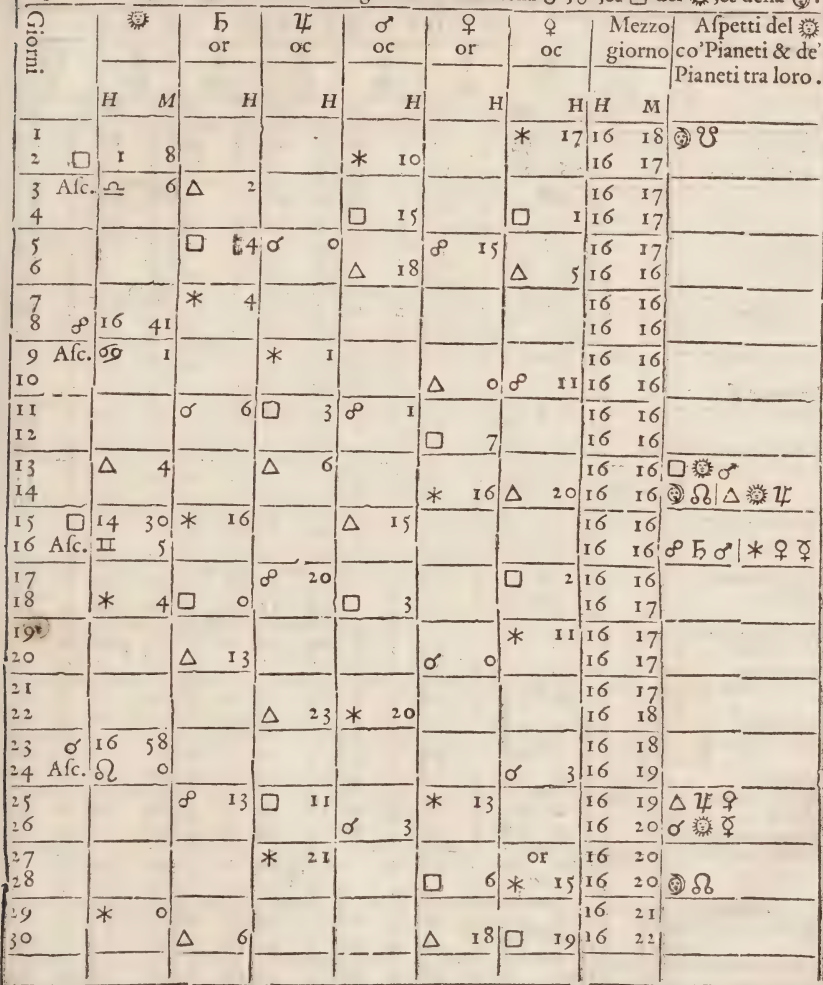 Giorni ☼ ♄ ♃ ♂ ♀ ☿ Mezzo Aſpetti del ☼
or oc oc or oc giorno co'Pianeti & de'
Pianeti tra loro.
H M H H H H H H M
1 ✱ 17 16 18 ☽ ☋
2 □ 1 8 ✱ 10 16 17
3 Aſc. ♎ 6 △ 2 16 17
4 □ 15 □ 1 16 17
5 □ 4 ☌ 0 ☍ 15 16 17
6 △ 18 △ 5 16 16
7 ✱ 4 16 16
8 ☍ 16 41 16 16
9 Aſc. ♋ 1 ✱ 1 16 16
10 △ 0 ☍ 11 16 16
11 ☌ 6 □ 3 ☍ 1 16 16
12 □ 7 16 16
13 △ 4 △ 6 16 16 □ ☼ ♂
14 ✱ 16 △ 20 16 16 ☽ ☊ | △ ☼ ♃
15 □ 14 30 ✱ 16 △ 15 16 16
16 Aſc. ♊ 5 16 16 ☍ ♄ ♂ | ✱ ♀ ☿
17 ☍ 20 □ 2 16 16
18 ✱ 4 □ 0 □ 3 16 17
19 ✱ 11 16 17
20 △ 13 ☌ 0 16 17
21 16 17
22 △ 23 ✱ 20 16 18
23 ☌ 16 58 16 18
24 Aſc. ♌ 0 ☌ 3 16 19
25 ☍ 13 □ 11 ✱ 13 16 19 △ ♃ ♀
26 ☌ 3 16 20 ☌ ☼ ☿
27 ✱ 21 or 16 20
28 □ 6 ✱ 15 16 20 ☽ ☊
29 ✱ 0 16 21
30 △ 6 △ 18 □ 19 16 22